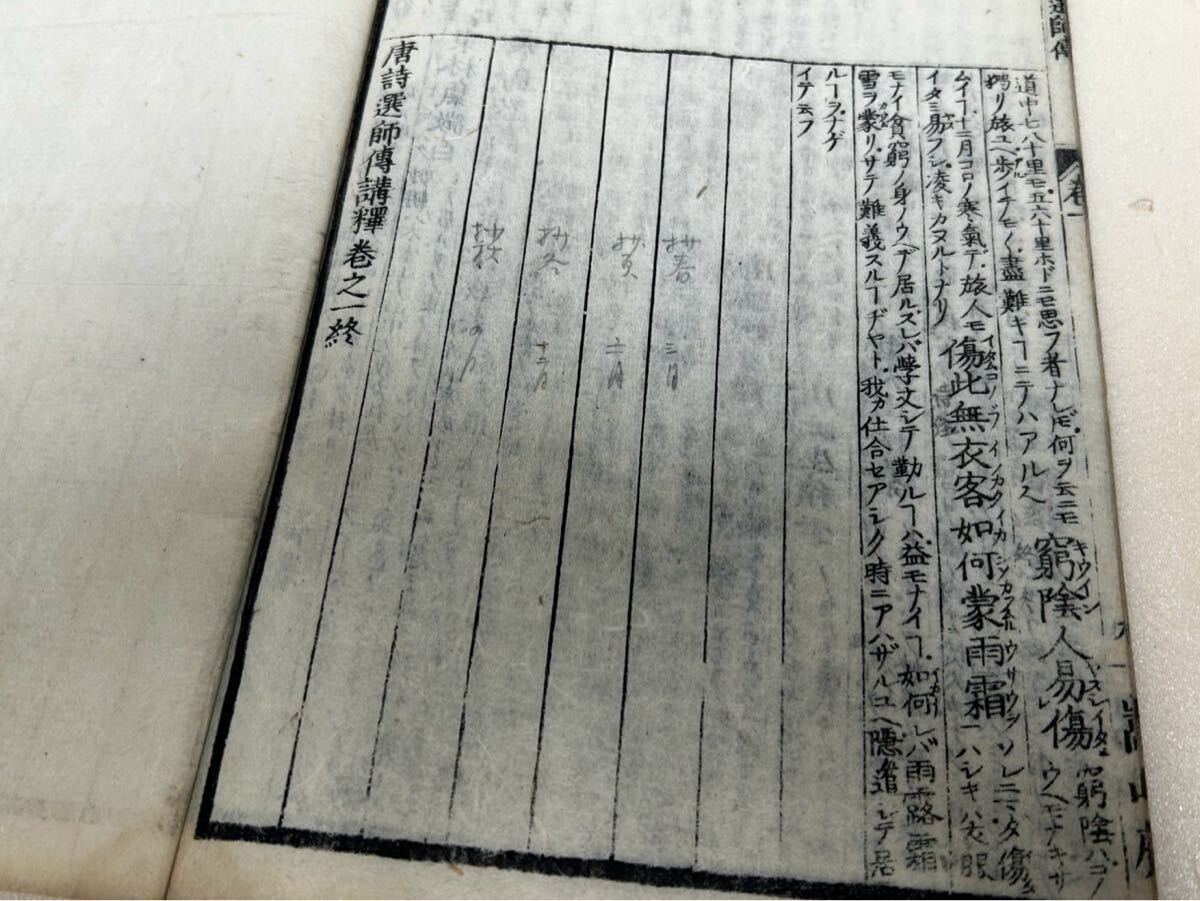 道中七八十里モ五六十里ホドニモ思フ者ナレ𪜈何ヲ云ニモ
獨リ旅ユヘ歩イテモ〱盡難キヿニテハアルヘ
窮陰人易傷
キウイン
窮陰ハコノ
ウヘモナキサ
ムイヿ十二月コロノ寒氣デ旅人モ
イタミ易フシ凌キカヌルトナリ
傷此無衣客如何蒙雨霜
ソレニマタ傷
ハシキハ衣服
モナイ貧窮ノ身ノウヘデ居ルスレバ學文シテ勤ルヿハ益モナイヿ如何レバ雨露霜
雪ヲ蒙リサテ難義スルヿヂヤト我カ仕合セアシク時ニアハザルユヘ隱遁シテ居
ルヿヲナゲ
イテ云フ
抄春 三月
抄夏 六月
抄冬 十二月
抄秋 九月
唐詩選師傳講釋卷之一終
師傳
卷一
嵩山房